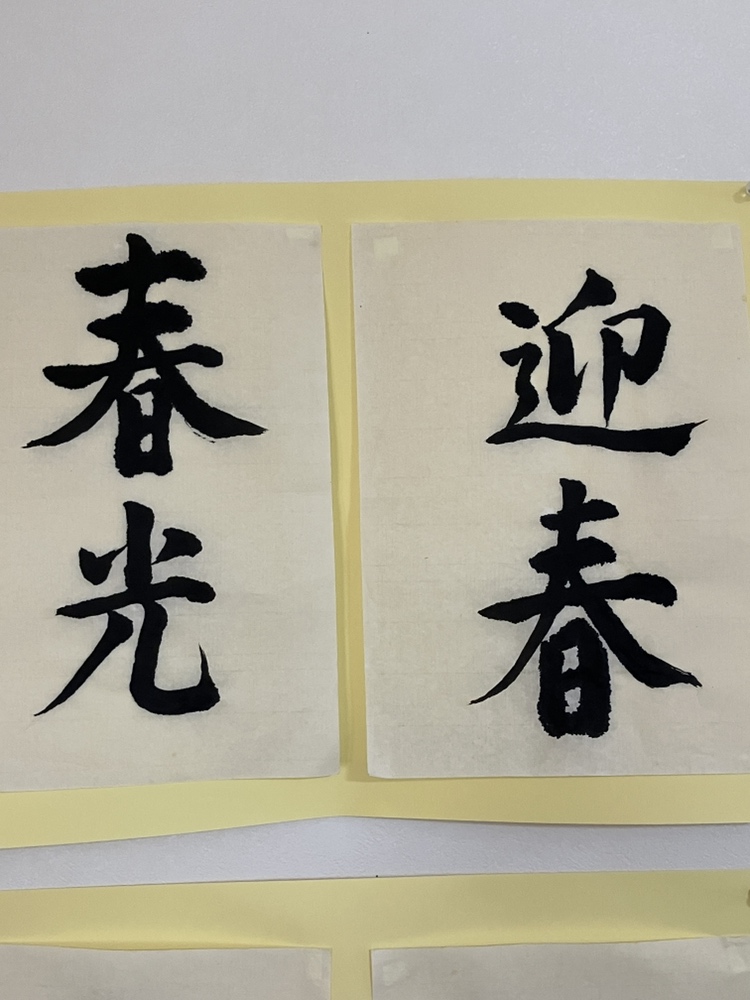 迎春
春光